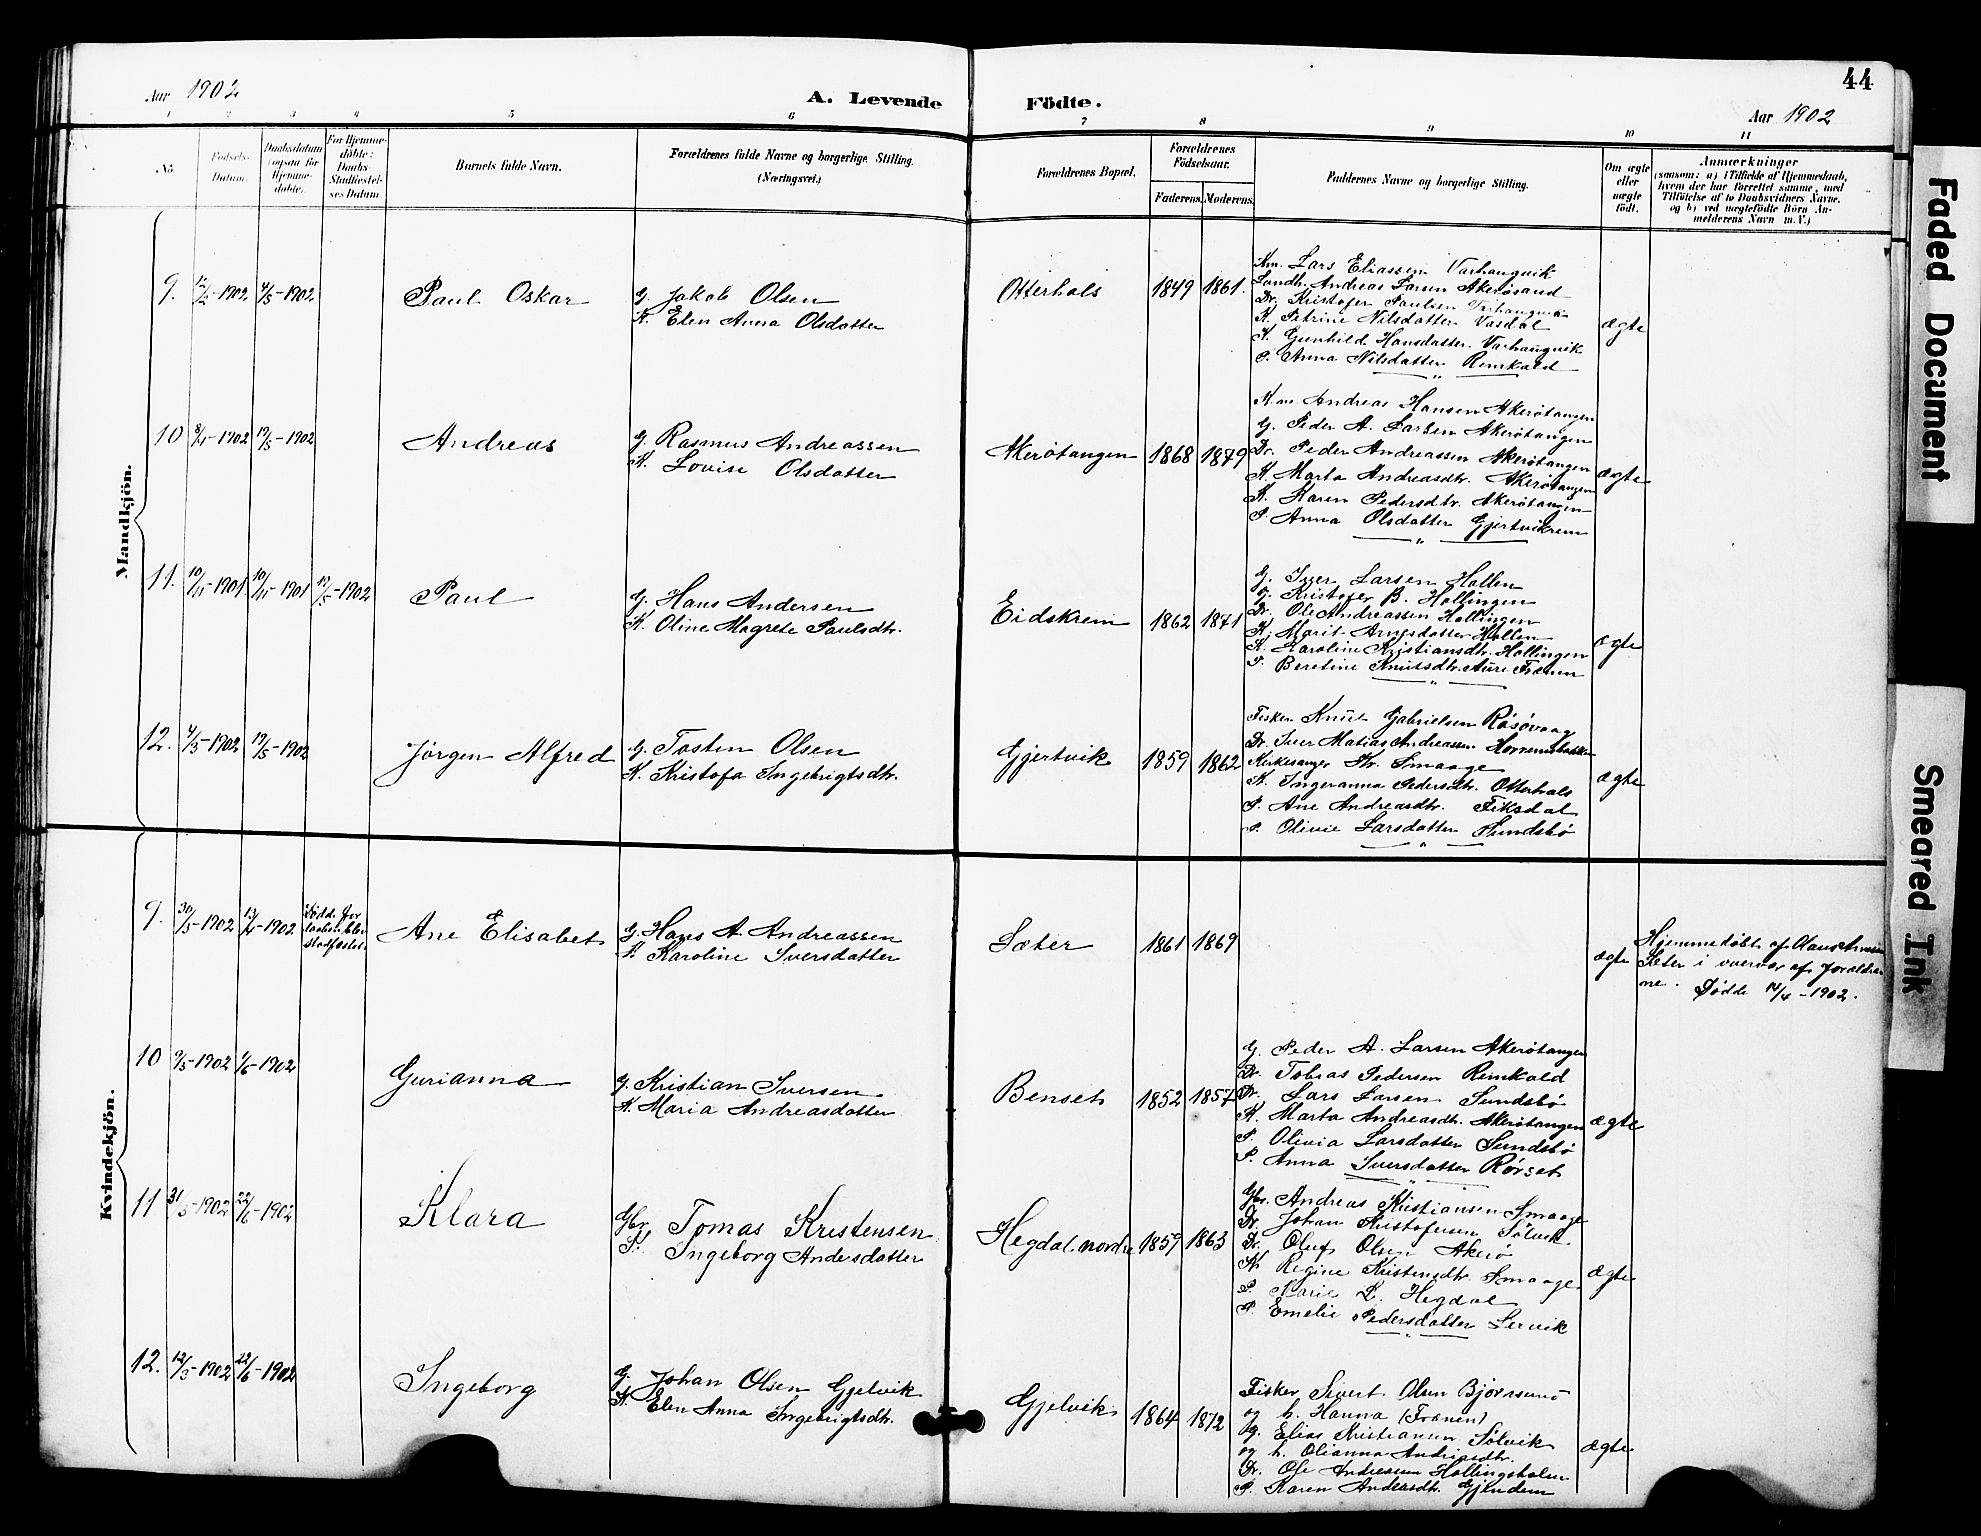 44
Aar 1902
A. Levende Födte.
Aar 1902
1 2 3 4 5 6 7 8 9 10 11
No.
Födsels-
Datum.
Daabsdatum
(ogsaa for
Hjemme-
döbte).
For Hjemme-
döbte:
Daabs
Stadfæstel-
ses Datum
Barnets fulde Navn.
Forældrenes fulde Navne og borgerlige Stilling.
(Næringsvei.)
Forældrenes Bopæl.
Forældrenes
Födselsaar.
Faderens. Moderens.
Faddernes Navne og borgerlige Stilling.
Om ægte
eller
uægte
födt.
Anmærkninger
(saasom: a) i Tilfælde af Hjemmedaab,
hvem der har forrettet samme, med
Tilföielse af to Daabsvidners Navne,
og b) ved uægtefödte Börn An-
melderens Navn m. V.)
Mandkjön.
9. -1902 4/5-1902 Paul Oskar
G. Jakob Olsen
K. Elen Anna Olsdatter
Otterhals 1849 1861.
Km. Lars Eliassen Varhaugvik
Landh. Andreas Larsen Akerösand
Dr. Kristofer Paulsen Varhaugvik
K. Petrine Nilsdatter Vasdal
K. Gunhild Hansdatter Varhaugvik
P. Anna Nilsdatter Remkald
ægte
10 -1902 19/5-1902 Andreas
G. Rasmus Andreassen
K. Lovise Olsdatter
Akerötangen 1868 1879
Km. Andreas Hansen Akerötangen
G. Peder A. Larsen Akerötangen
Dr. Peder Andreassen Akerötangen
K. Marta Andreasdtr. Akerötangen
K. Karen Pedersdtr. Akerötangen
P. Anna Olsdatter Gjertvikrem
ægte
11. 10/11-1901 10/11-1901 19/5-1902 Paul
G. Hans Andersen
K. Oline Magrete Paulsdtr.
Eidskrem 1862 1871
G. Iver Larsen Hollen
G. Kristofer B. Hollingen
Dr. Ole Andreassen Hollingen
K. Marit Arnesdatter Hollen
K. Karoline Kristiansdtr. Hollingen
P. Beretine Knutsdtr. Aure Frænen
ægte
12. 4/5-1902 19/5-1902 Jörgen Alfred
G. Tosten Olsen
K. Kristofa Ingebrigtsdtr.
Gjertvik 1859 1862
Fisker Knut Gabrielsen Rösövaag
Dr. Iver Matias Andreassen
Kirkesanger Kr. Smaage
K. Ingeranna Pedersdtr. Otterhals
P. Ane Andreasdtr. Fiksdal
P. Olivie Larsdatter Sundsbö
ægte
Kvindekjön.
9. 30/3-1902 13/4-1902 Född. før
Ane Elisabet
G. Hans A. Andreassen
K. Karoline Iversdatter
Sæter 1861 1869
ægte
Hjemmedöbt af Olaus
Sæter i overvær af forældre-
ne. Dödde 14/4-1902.
10 9/5-1902 1/6-1902 Gurianna
G. Kristian Iversen
K. Maria Andreasdatter
Benset 1852 1857
G. Peder A. Larsen Akerötangen
Dr. Tobias Pedersen Remkald
Dr. Lars Larsen Sundsbö
K. Marta Andreasdtr. Akerötangen
P. Olivia Larsdatter Sundsbö
P. Anna Iversdatter Rörset
ægte
11 31/5-1902 22/6-1902 Klara
Gbr. Tomas Kristensen
K. Ingeborg Andersdatter
Hegdal nordre 1859 1863
Gbr. Andreas Kristiansen Smaage
Dr. Johan Kristofersen Sölvik
Dr. Oluf Olsen Akerö
K. Regine Kristensdtr. Smaage
P. Marie L. Hegdal
P. Emelie Pedersdatter Lervik
ægte
12. 12/5-1902 22/6-1902 Ingeborg
G. Johan Olsen Gjelvik
K. Elen Anna Ingebrigtsdtr.
Gjelvik 1864 1872
Fisker Sivert Olsen Björnsund
og h. Hanna (Frænen)
G. Elias Kristiansen Sölvik
og h. Olianna Andreasdtr.
Dr. Ole Andreassen Hollingsholm
P. Karen Andreasdtr. Gjendem
ægte
Faded Document
Smeared Ink